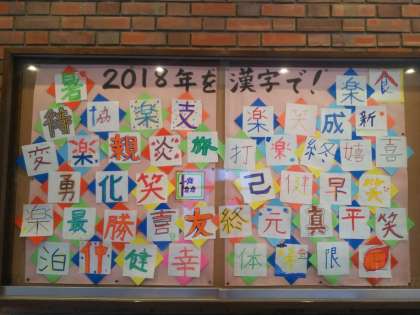 2018年を漢字で!
暑 楽 食
待 協 楽 支 楽 笑 成 新
変 楽 親 炎 旅 打 楽 終 嬉 喜
勇 化 笑 己 健 早 笑
楽 最 勝 喜 友 終 元 真 平 笑
泊 竹 健 幸 体 限